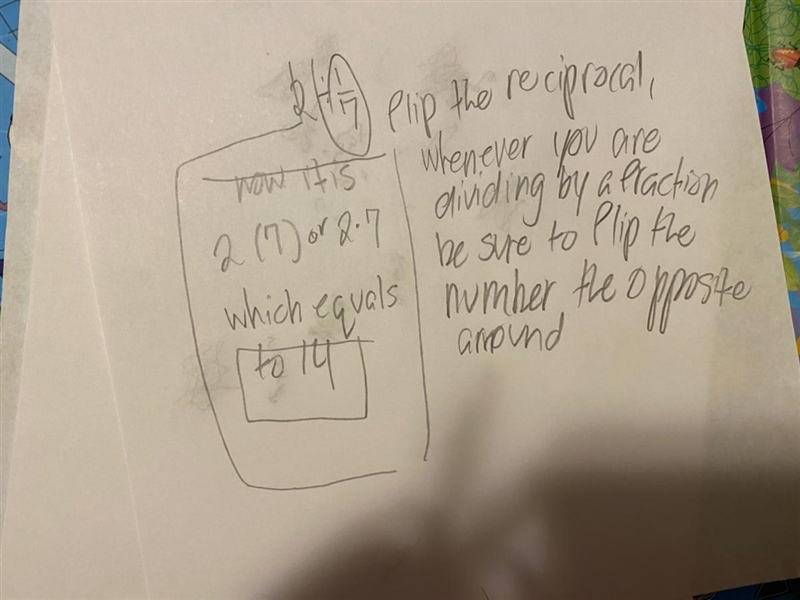 2 ÷ 1/7
now it is
2 (7) or 2·7
which equals
to 14
flip the reciprocal,
whenever you are
dividing by a fraction
be sure to flip the
number the opposite
around